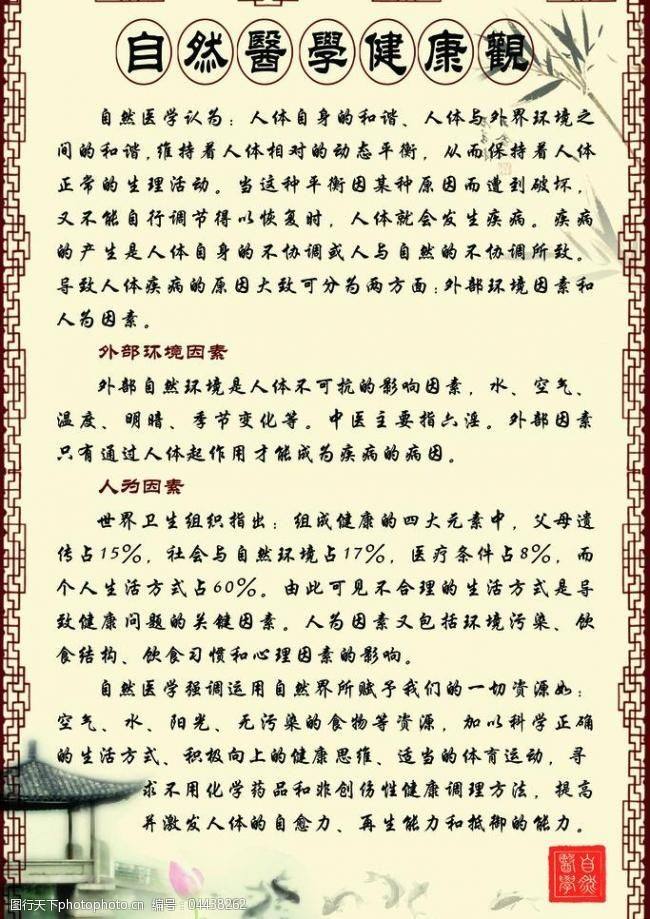 自然醫學健康觀
自然医学认为：人体自身的和谐、人体与外界环境之
间的和谐，维持着人体相对的动态平衡，从而保持着人体
正常的生理活动。当这种平衡因某种原因而遭到破坏，
又不能自行调节得以恢复时，人体就会发生疾病。疾病
的产生是人体自身的不协调或人与自然的不协调所致。
导致人体疾病的原因大致可分为两方面：外部环境因素和
人为因素。
外部环境因素
外部自然环境是人体不可抗的影响因素，水、空气、
温度、明暗、季节变化等。中医主要指六淫。外部因素
只有通过人体起作用才能成为疾病的病因。
人为因素
世界卫生组织指出：组成健康的四大元素中，父母遗
传占15%，社会与自然环境占17%，医疗条件占8%，而
个人生活方式占60%。由此可见不合理的生活方式是导
致健康问题的关键因素。人为因素又包括环境污染、饮
食结构、饮食习惯和心理因素的影响。
自然医学强调运用自然界所赋予我们的一切资源如：
空气、水、阳光、无污染的食物等资源，加以科学正确
的生活方式、积极向上的健康思维、适当的体育运动，寻
求不用化学药品和非创伤性健康调理方法，提高
并激发人体的自愈力、再生能力和抵御的能力。
自然
醫學
图行天下photophoto.cn 编号：04438262